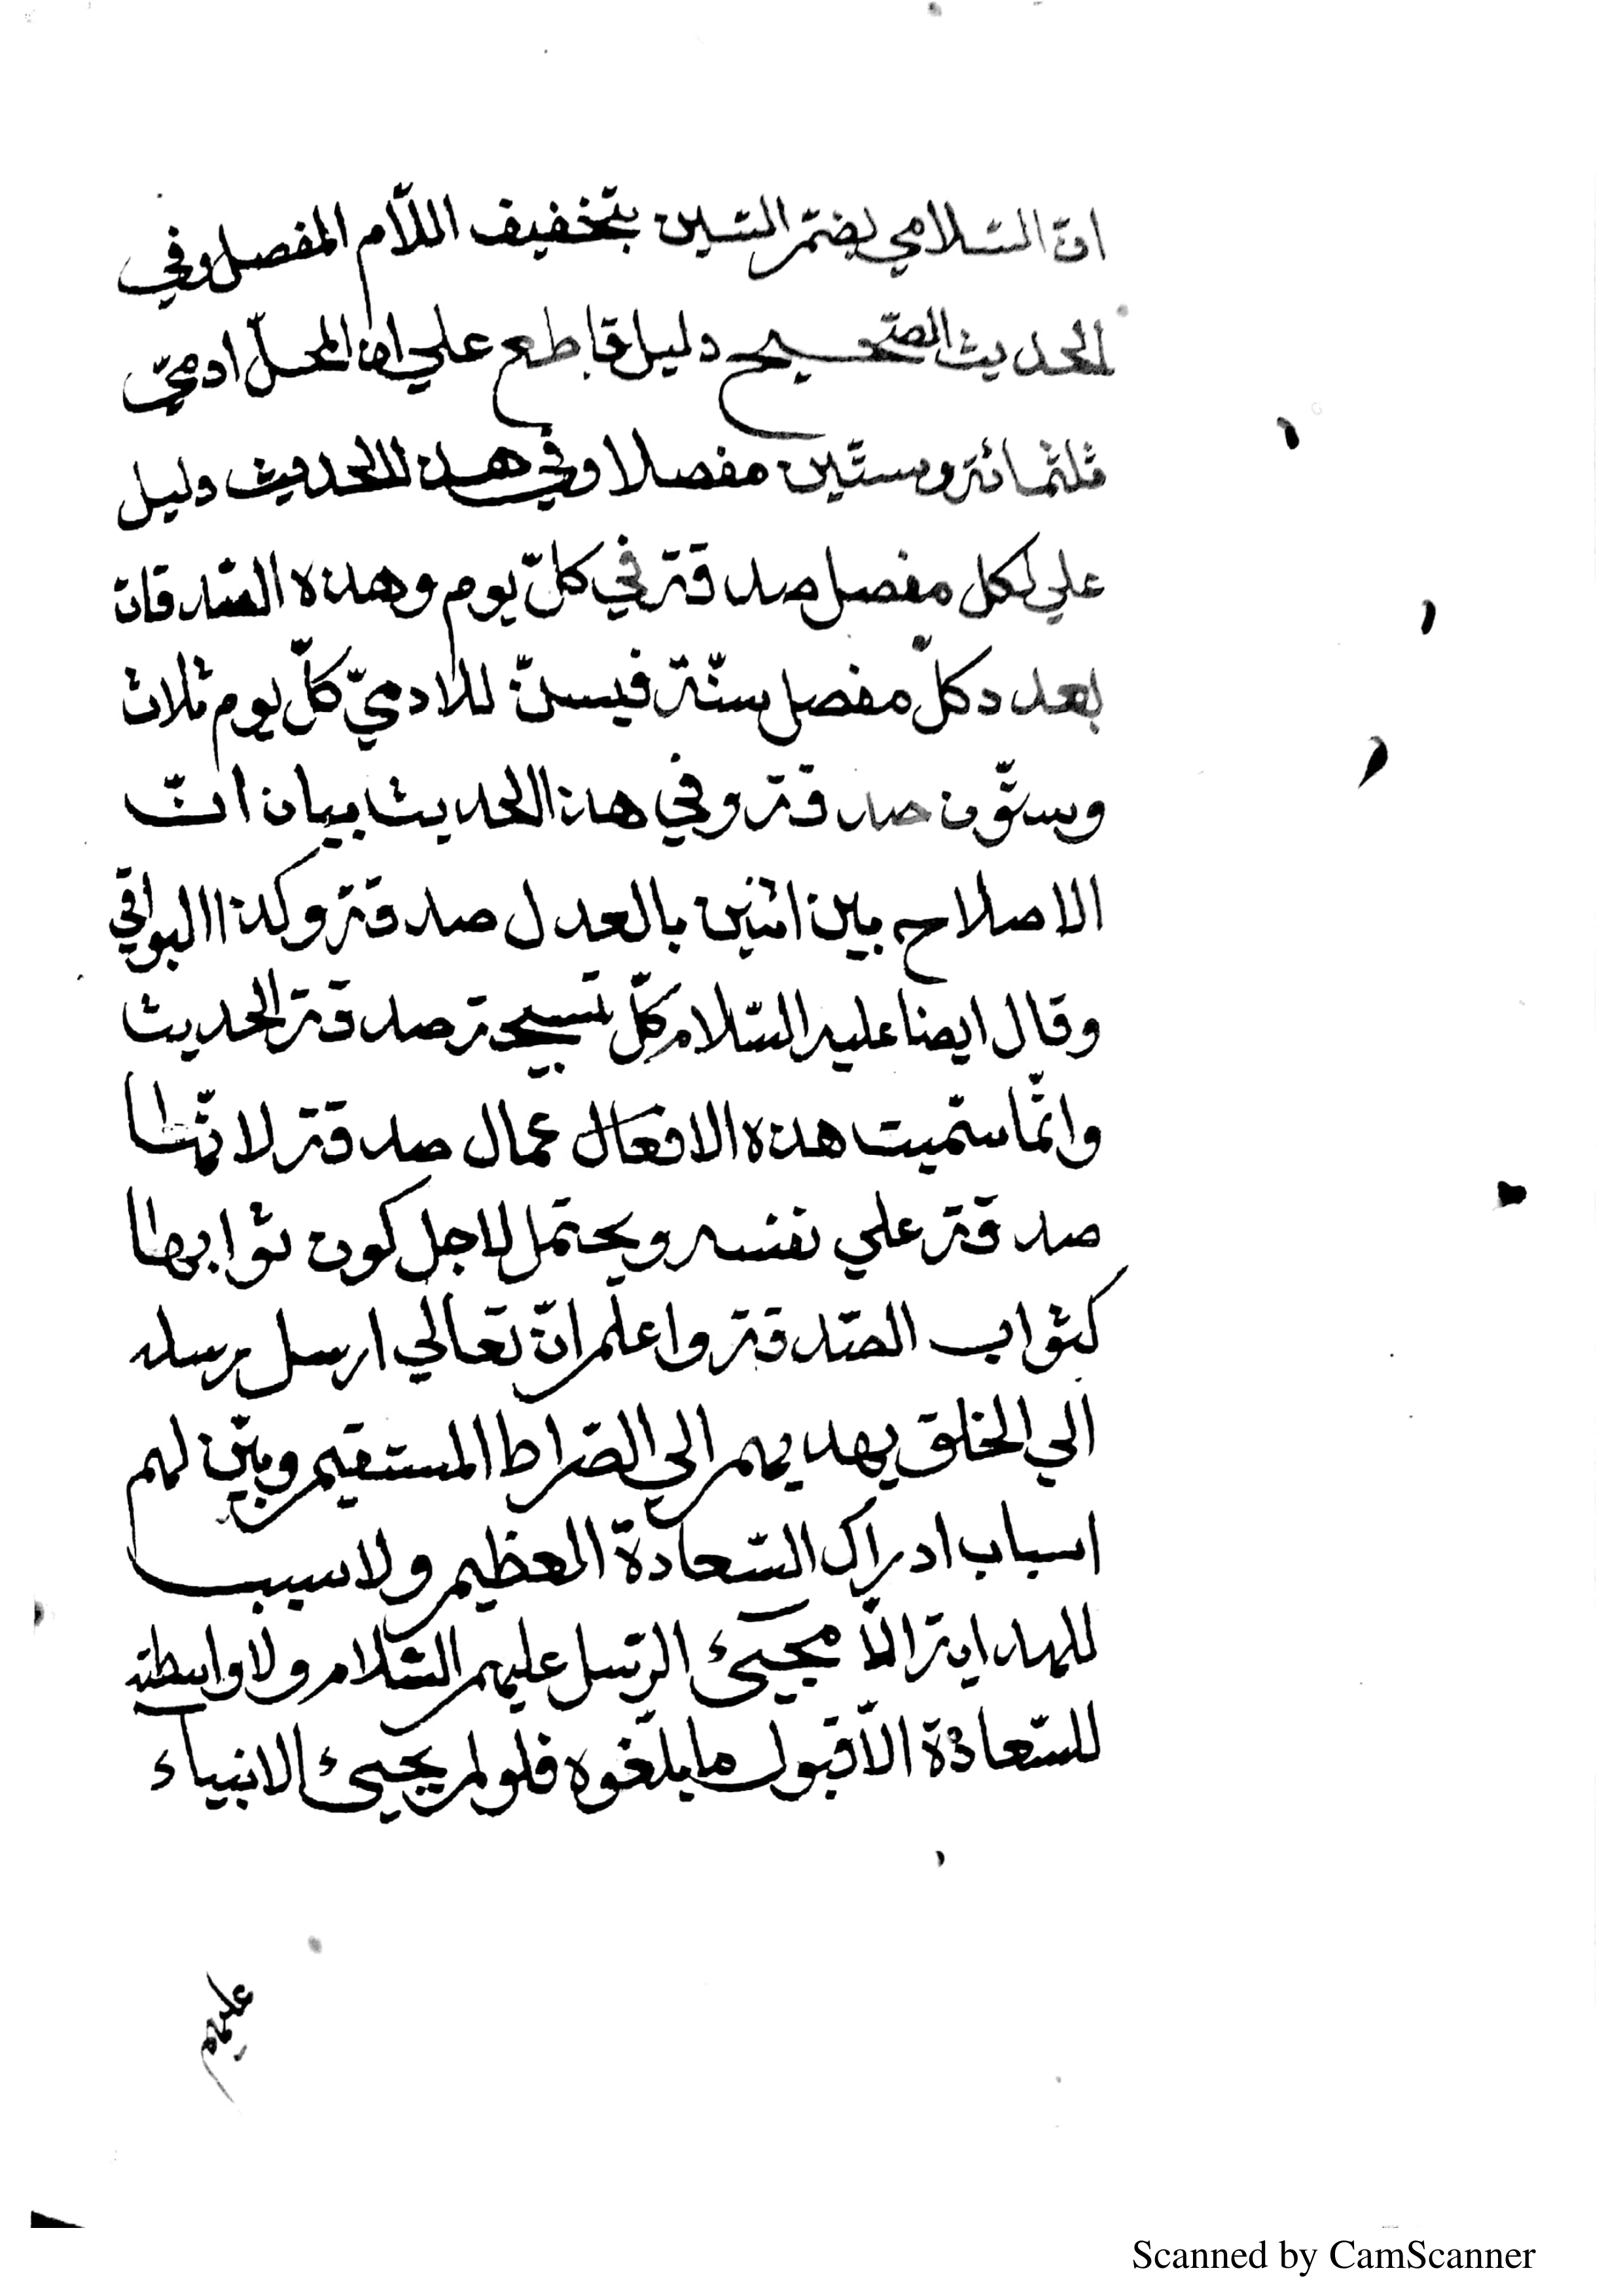 انّ السّلامي بضمّ السّين بتخفيف اللّام المفصل وفي
الحديث الصّحيح دليل قاطع علي ان المحلّ ادميّ
ثلثمائة وستّين مفصلا وفي هذا الحديث دليل
علي لكل مفصل صدقة في كلّ يوم وهذه الصّدقات
بعدد كلّ مفصل سنّة فيسنّ للادميّ كلّ يوم ثلاث
وستّون صدقة وفي هذا الحديث بيان انّ
الاصلاح بين اثنين بالعدل صدقة وكذا البواقي
وقال ايضا عليه السّلام كلّ تسبيحة صدقة الحديث
وانّما سمّيت هذه الافعال عمال صدقة لانّها
صدقة علي نفسه ويحتمل لاجل كون ثوابها
كثواب الصّدقة واعلم انّ تعالي ارسل رسله
الي الخلق يهديهم الي الصّراط المستقيم وبيّن لهم
اسباب ادراك السّعادة العظيم ولا سبب
للهداية الّا مجيئ الرّسل عليهم السّلام ولا واسطة
للسّعادة الّا قبول ما بلّغوه فلو لم يجيئ الانبياء
عليهم
Scanned by CamScanner